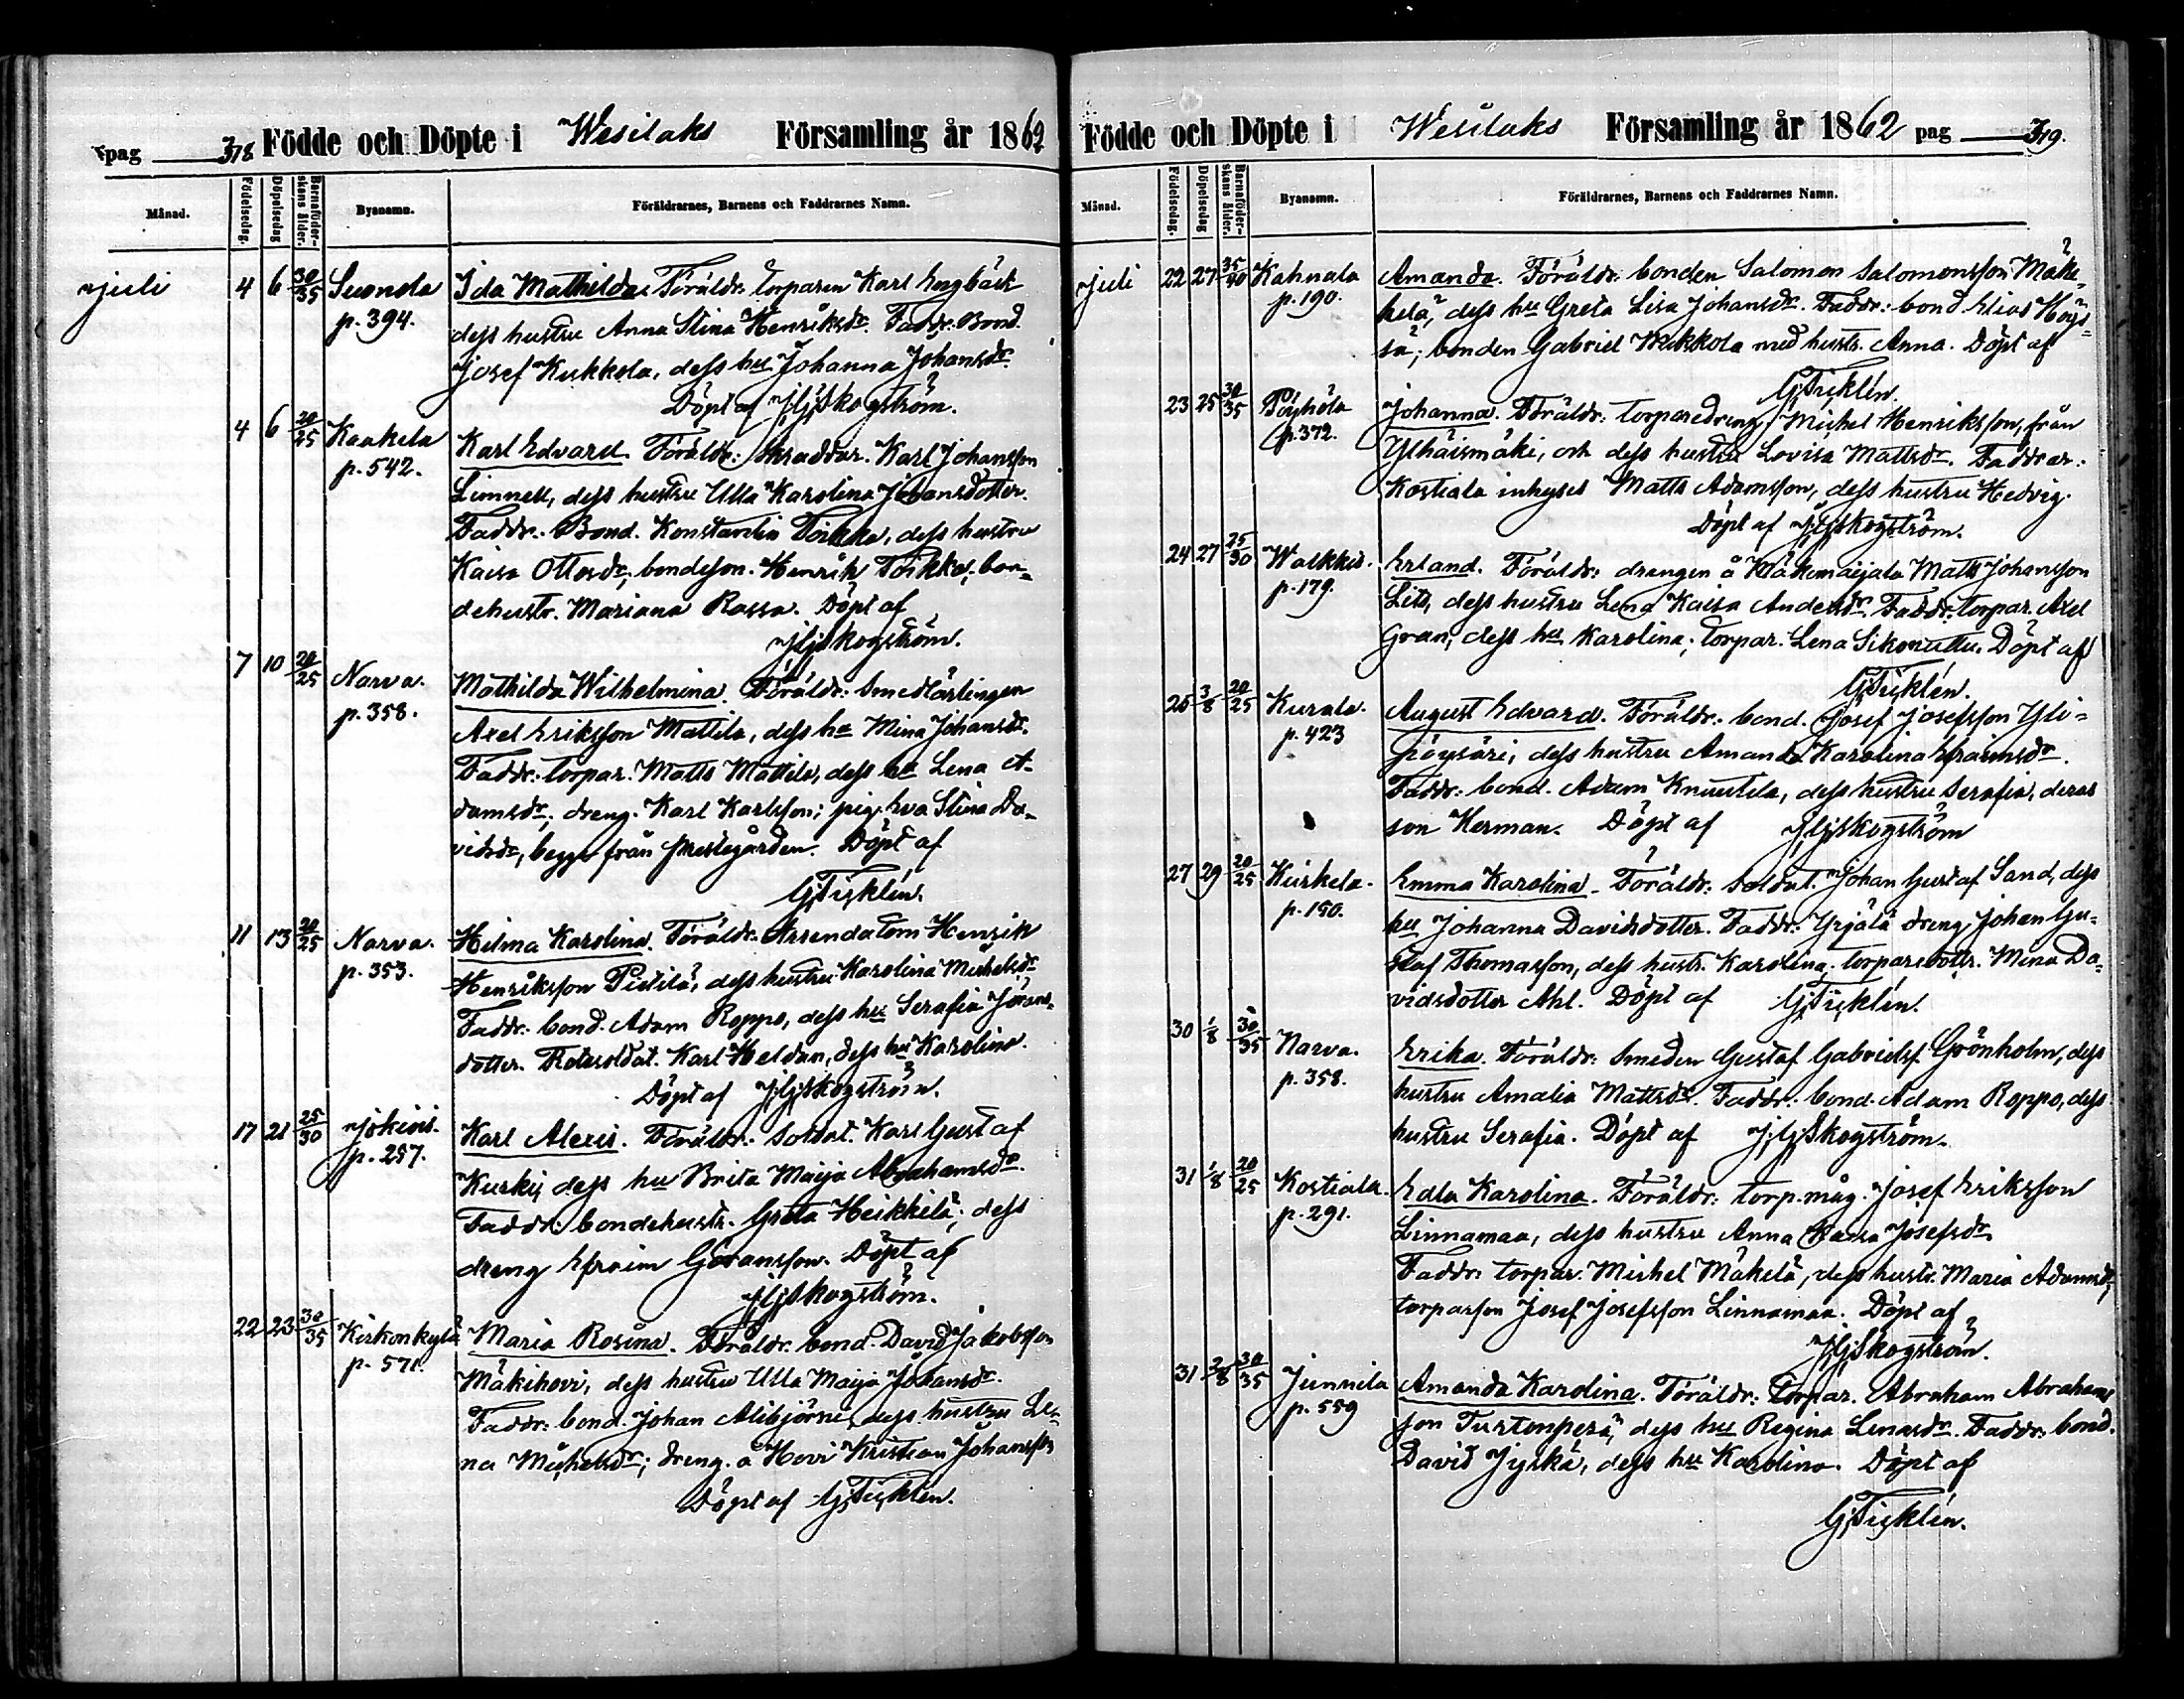 pag 318 Födde och Döpte i Wesilaks Församling år 1862
Månad. Födelsedag. Döpelsedag Barnaföder-skans ålder. Byanamn. Föräldrarnes, Barnens och Faddrarnes Namn.
juli 4 6 30/35 Suonola Ida Mathilda. Föräldr: torparen Karl Engbäck
p. 394. dess hustru Anna Stina Henriksdr. Faddr. Bond.
Josef Kukkola, dess hu Johanna Johansdr.
Döpt af J.G. Skogström.
4 6 20/25 Kaakela Karl Edvard. Föräldr: Skräddar. Karl Johansson
p. 542. Limnell, dess hustru Ulla Karolina Johansdotter.
Faddr: Bond. Konstantin Toikka, dess hustru
Kaisa Ottosdr; bondeson. Henrik Toikka, bon-
dehustr. Mariana Rassa. Döpt af
J.G. Skogström.
7 10 20/25 Narva. Mathilda Wilhelmina. Föräldr: Smedlärlingen
p. 358. Axel Eriksson Mattila, dess hu Mina Johansdr.
Faddr: torpar. Matts Mattila, dess hu Lena A-
damsdr; dreng. Karl Karlsson; pig. Eva Stina Da-
vidsdr, begge från Prestegården. Döpt af
G. Ticklén.
11 13 20/25 Narva. Hilma Karolina. Föräldr: Arrendatorn Henrik
p. 353. Henriksson Pietilä, dess hustru Karolina Michelsdr
Faddr: bond. Adam Roppo, dess hu Serafia Jörans-
dotter. Rotesoldat. Karl Heldan, dess hu Karolina.
Döpt af J.G. Skogström.
17 21 25/30 Jokiois. Karl Alexis. Föräldr: soldat. Karl Gustaf
p. 257. Kurki, dess hu Brita Maija Abrahamsdr.
Faddr: bondehustr. Greta Heikkilä; dess
dreng Efraim Göransson. Döpt af
J.G. Skogström.
22 23 30/35 Kirkonkylä Maria Rosina. Föräldr. bond. David Jakobsson
p. 571. Mäkihovi, dess hustru Ulla Maija Johansdr.
Faddr: bond. Johan Alibjörni, dess hustru Le-
na Michelsdr; dreng. å Hovi Kristian Johansson
Döpt af G. Ticklén.
Födde och Döpte i Wesilaks Församling år 1862 pag 319.
Månad. Födelsedag. Döpelsedag Barnaföder-skans ålder. Byanamn. Föräldrarnes, Barnens och Faddrarnes Namn.
juli 22 27 35/40 Kahnala Amanda. Föräldr: bonden Salomon Salomonsson Mäke-
p. 190. helä, dess hu Greta Lisa Johansdr. Faddr: bond Elias Höys-
sä; bonden Gabriel Mukkola med hustr. Anna. Döpt af
G. Ticklén.
23 25 30/35 Pöyhölä Johanna. Föräldr: torparedreng Michel Henriksson, från
p. 372. Ylhäismäki, och dess hustru Lovisa Mattsdr. Faddrar:
Kostiala inhyses Matts Adamsson, dess hustru Hedvig.
Döpt af J.G. Skogström.
24 27 25/30 Walkkis. Erland. Föräldr: drengen å Matts Johansson
p. 179. Lits, dess hustru Lena Kaisa Andersdr. Faddr: torpar. Axel
Gran, dess hu Karolina; torpar. Lena Döpt af
G. Ticklén.
25 3/8 20/25 Kurala. August Edvard. Föräldr: bond. Josef Josefsson Yli-
p. 423 pöysäri, dess hustru Amanda Karolina Efraimsdr.
Faddr: bond. Adam Knuutila, dess hustru Serafia, deras
son Herman. Döpt af J.G. Skogström
27 29 20/25 Kurkela. Emma Karolina. Föräldr: Soldat. Johan Gustaf Sand, dess
p. 150. hu Johanna Davidsdotter. Faddr: Yrjälä dreng Johan Gu-
staf Thomasson, dess hustr. Karolina; torparedottr. Mina Da-
vidsdotter Ahl. Döpt af G. Ticklén.
30 1/8 30/35 Narva. Erika. Föräldr: Smeden Gustaf Gabrielsf Grönholm, dess
p. 358. hustru Amalia Mattsdr. Faddr: bond. Adam Roppo, dess
hustru Serafia. Döpt af J.G. Skogström.
31 1/8 20/25 Kostiala. Edla Karolina. Föräldr: torp.måg. Josef Eriksson
p. 291. Linnamaa, dess hustru Anna Kaisa Josefsdr
Faddr: torpar. Michel Mäkelä, dess hustr. Maria Adamsdr,
torparson Josef Josefsson Linnamaa. Döpt af
J.G. Skogström.
31 2/8 30/35 Junnila Amanda Karolina. Föräldr: torpar. Abraham Abrahams-
p. 559 son dess hu Regina Lenasdr. Faddr: bond.
David Jyskä, dess hu Karolina. Döpt af
G. Ticklén.